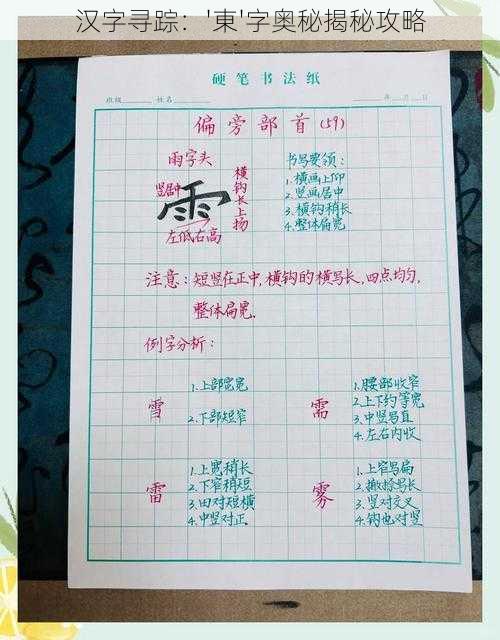 汉字寻踪：'東'字奥秘揭秘攻略
硬笔书法纸
班级 姓名 年 月 日
偏旁部首(59)
雨字头
竖居中
横钩长上扬
左低右高
书写要领：
1.横画上仰
2.竖画居中
3.横钩稍长
4.整体扁宽
注意：短竖在正中,横钩的横写长,四点均匀,
整体扁宽.
例字分析：
雪
1.上部宽宽
2.下部短窄
需
1.腰部收窄
2.上下约等宽
3.中竖写直
4.左右内收
雷
1.上宽稍长
2.下窄稍短
3.田对短横
4.中竖对正
雾
1.上窄写扁
2.撇捺写长
3.竖对交叉
4.钩也对竖